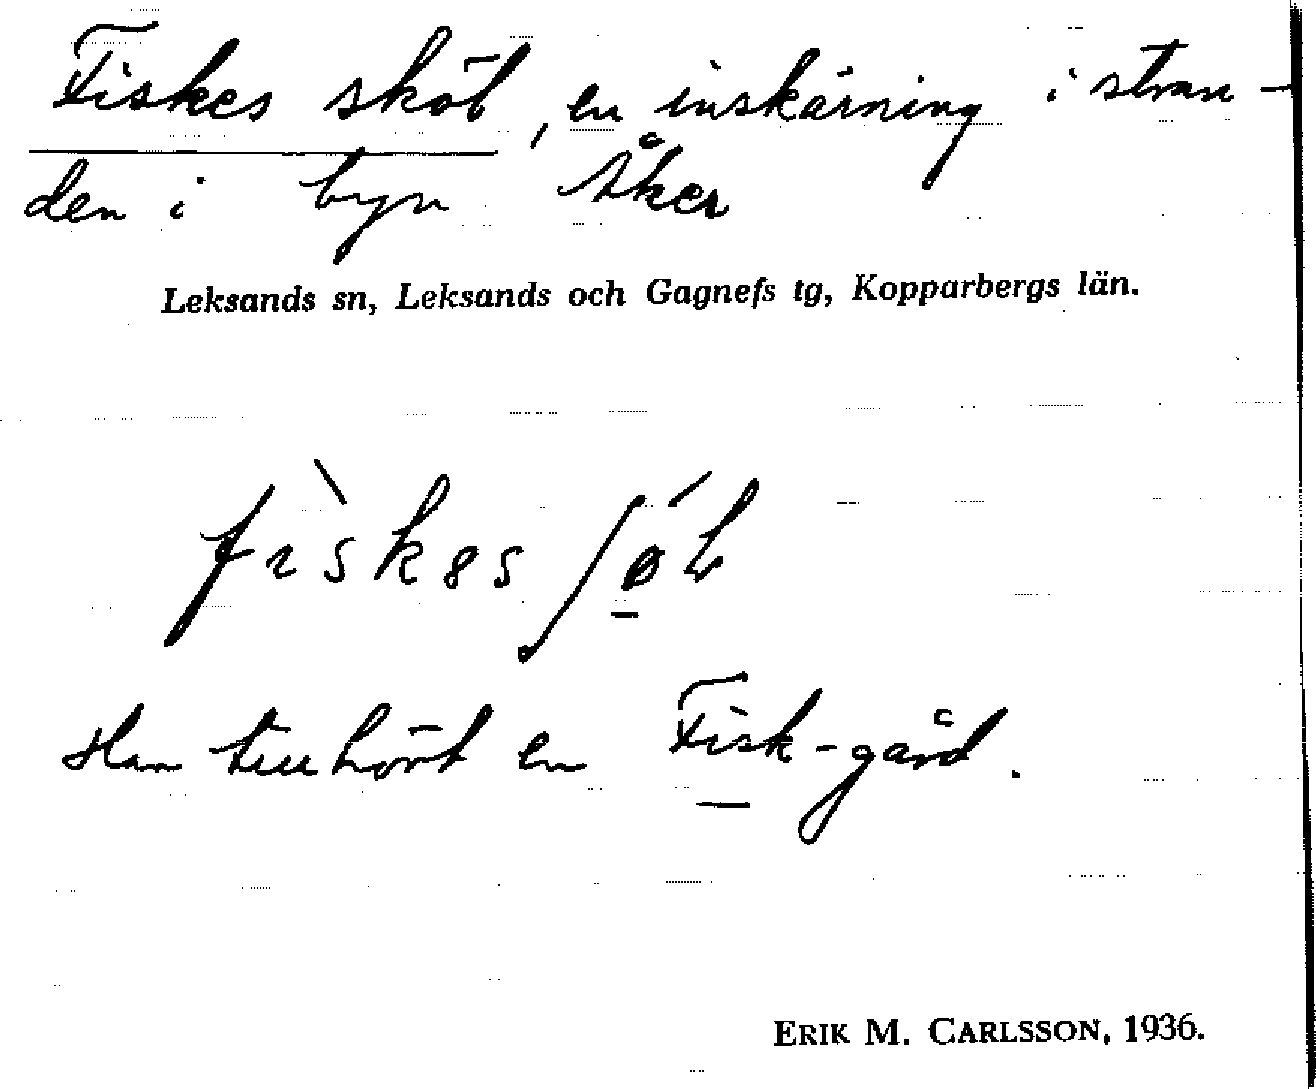 Fiskes sköt, en inskärning i stran-
den i byn Åker
Leksands sn, Leksands och Gagnefs tg, Kopparbergs län.
Har tillhört en Fisk-gård.
ERIK M. CARLSSON, 1936.